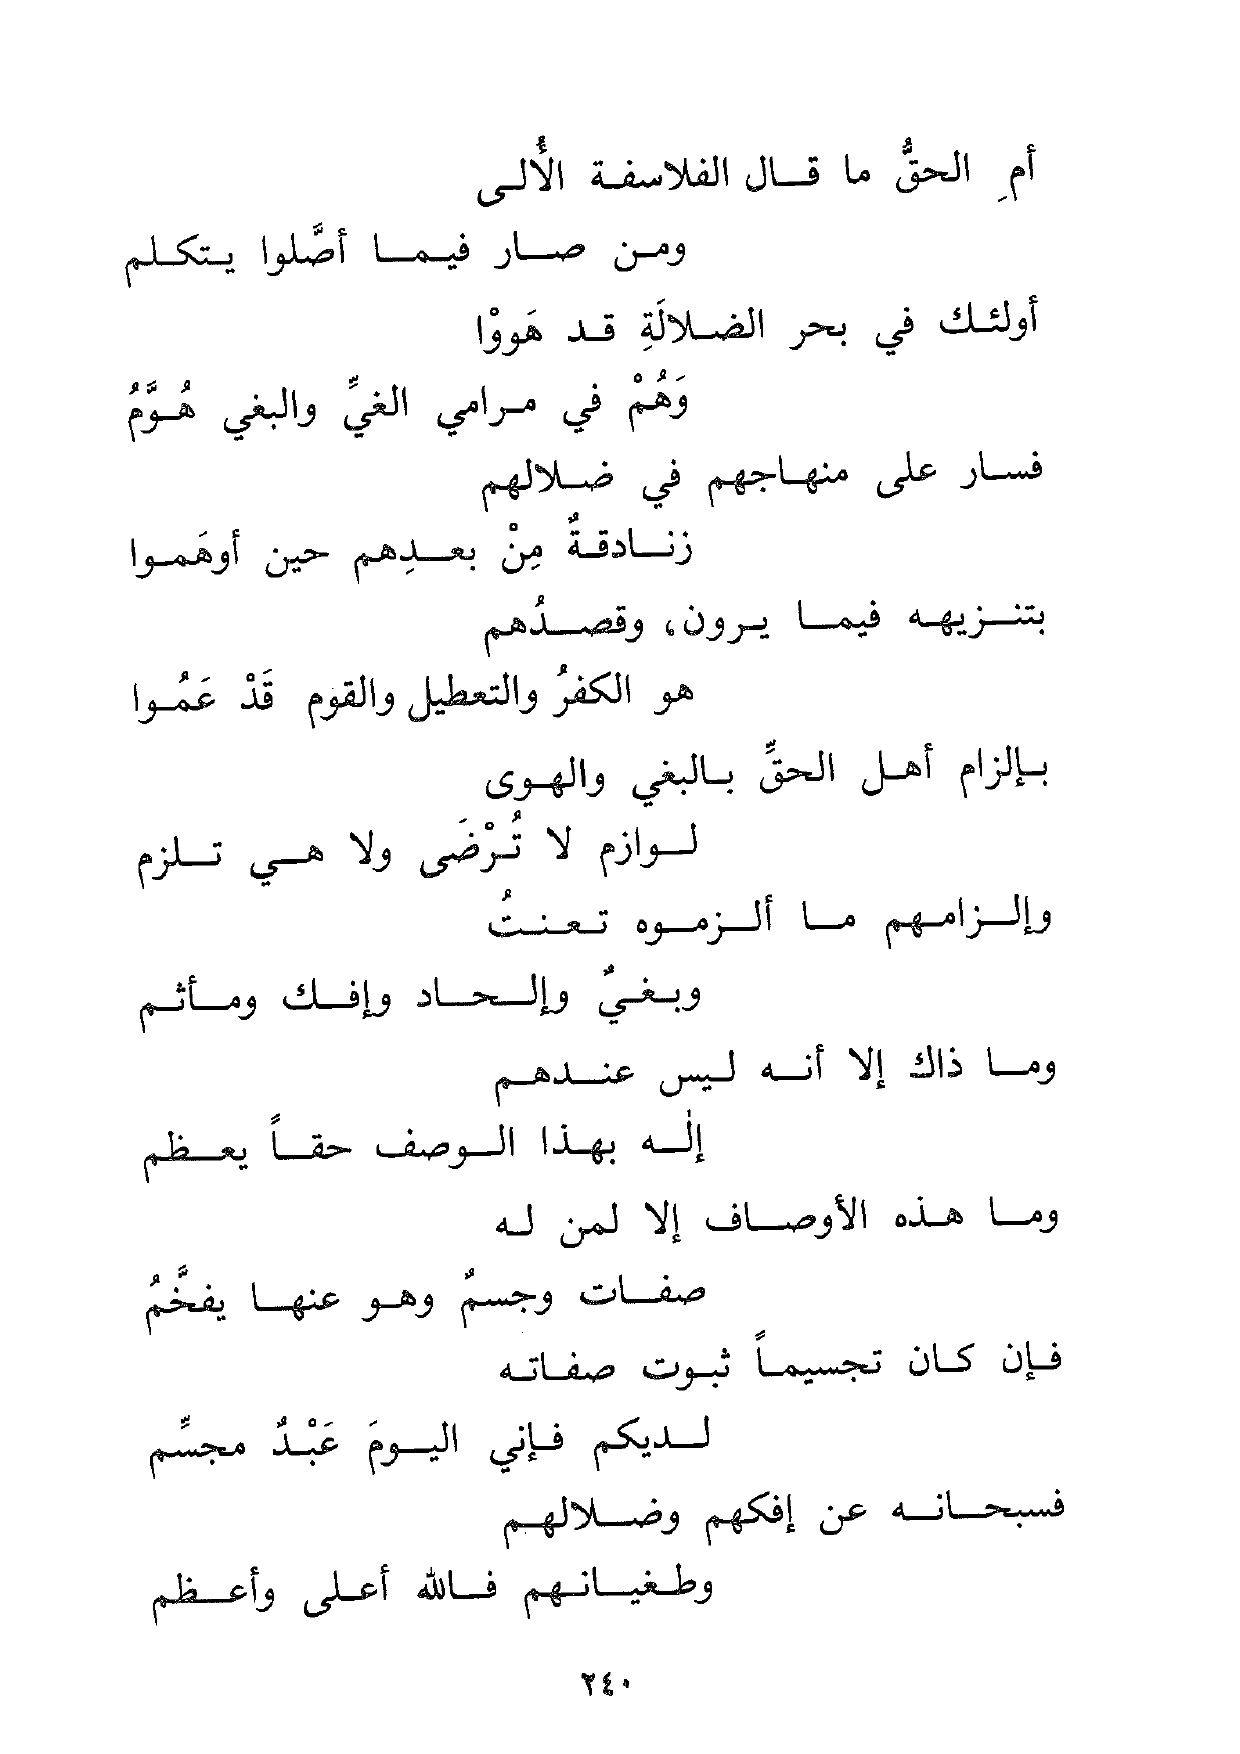 أمِ الحقُّ ما قال الفلاسفة الأُلى
ومن صار فيما أصَّلوا يتكلم
أولئك في بحر الضلالَةِ قد هَووْا
وَهُمْ في مرامي الغيِّ والبغي هُوَّمُ
فسار على منهاجهم في ضلالهم
زنادقةٌ مِنْ بعدِهم حين أوهَموا
بتنزيهه فيما يرون، وقصدُهم
هو الكفرُ والتعطيل والقوم قَدْ عَمُوا
بإلزام أهل الحقِّ بالبغي والهوى
لوازم لا تُرْضَى ولا هي تلزم
وإلزامهم ما ألزموه تعنتُ
وبغيٌ وإلحاد وإفك ومأثم
وما ذاك إلا أنه ليس عندهم
إلٰه بهذا الوصف حقاً يعظم
وما هذه الأوصاف إلا لمن له
صفات وجسمٌ وهو عنها يفخَّمُ
فإن كان تجسيماً ثبوت صفاته
لديكم فإني اليومَ عَبْدٌ مجسِّم
فسبحانه عن إفكهم وضلالهم
وطغيانهم فالله أعلى وأعظم
٢٤٠